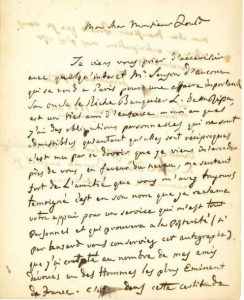 Mon cher Monsieur
Je viens vous prier d'accueillir
avec quelqu'intérêt Mr
qui se rend à Paris pour une affaire importante
Son oncle le Riche Banquier L.
est un tiel ami d'enfance, à moi au quel
J'ai des obligations personnelles, qui me sont
d'autant qu'elles sont réciproques
c'est mu par ce devoir que je viens interceder
près de vous, en faveur du neveu, me sentant
fort de l'amitié que vous m'avez toujours
temoigné c'est en son nom que je reclame
votre appui pour un service qui m'est tout
Personnel et qui prouvera à la posterité (si
par hasard vous conserviez cet autographe)
que j'ai compté au nombre de mes amis
un des Hommes les plus Eminent
de france. C'est dans cette certitude